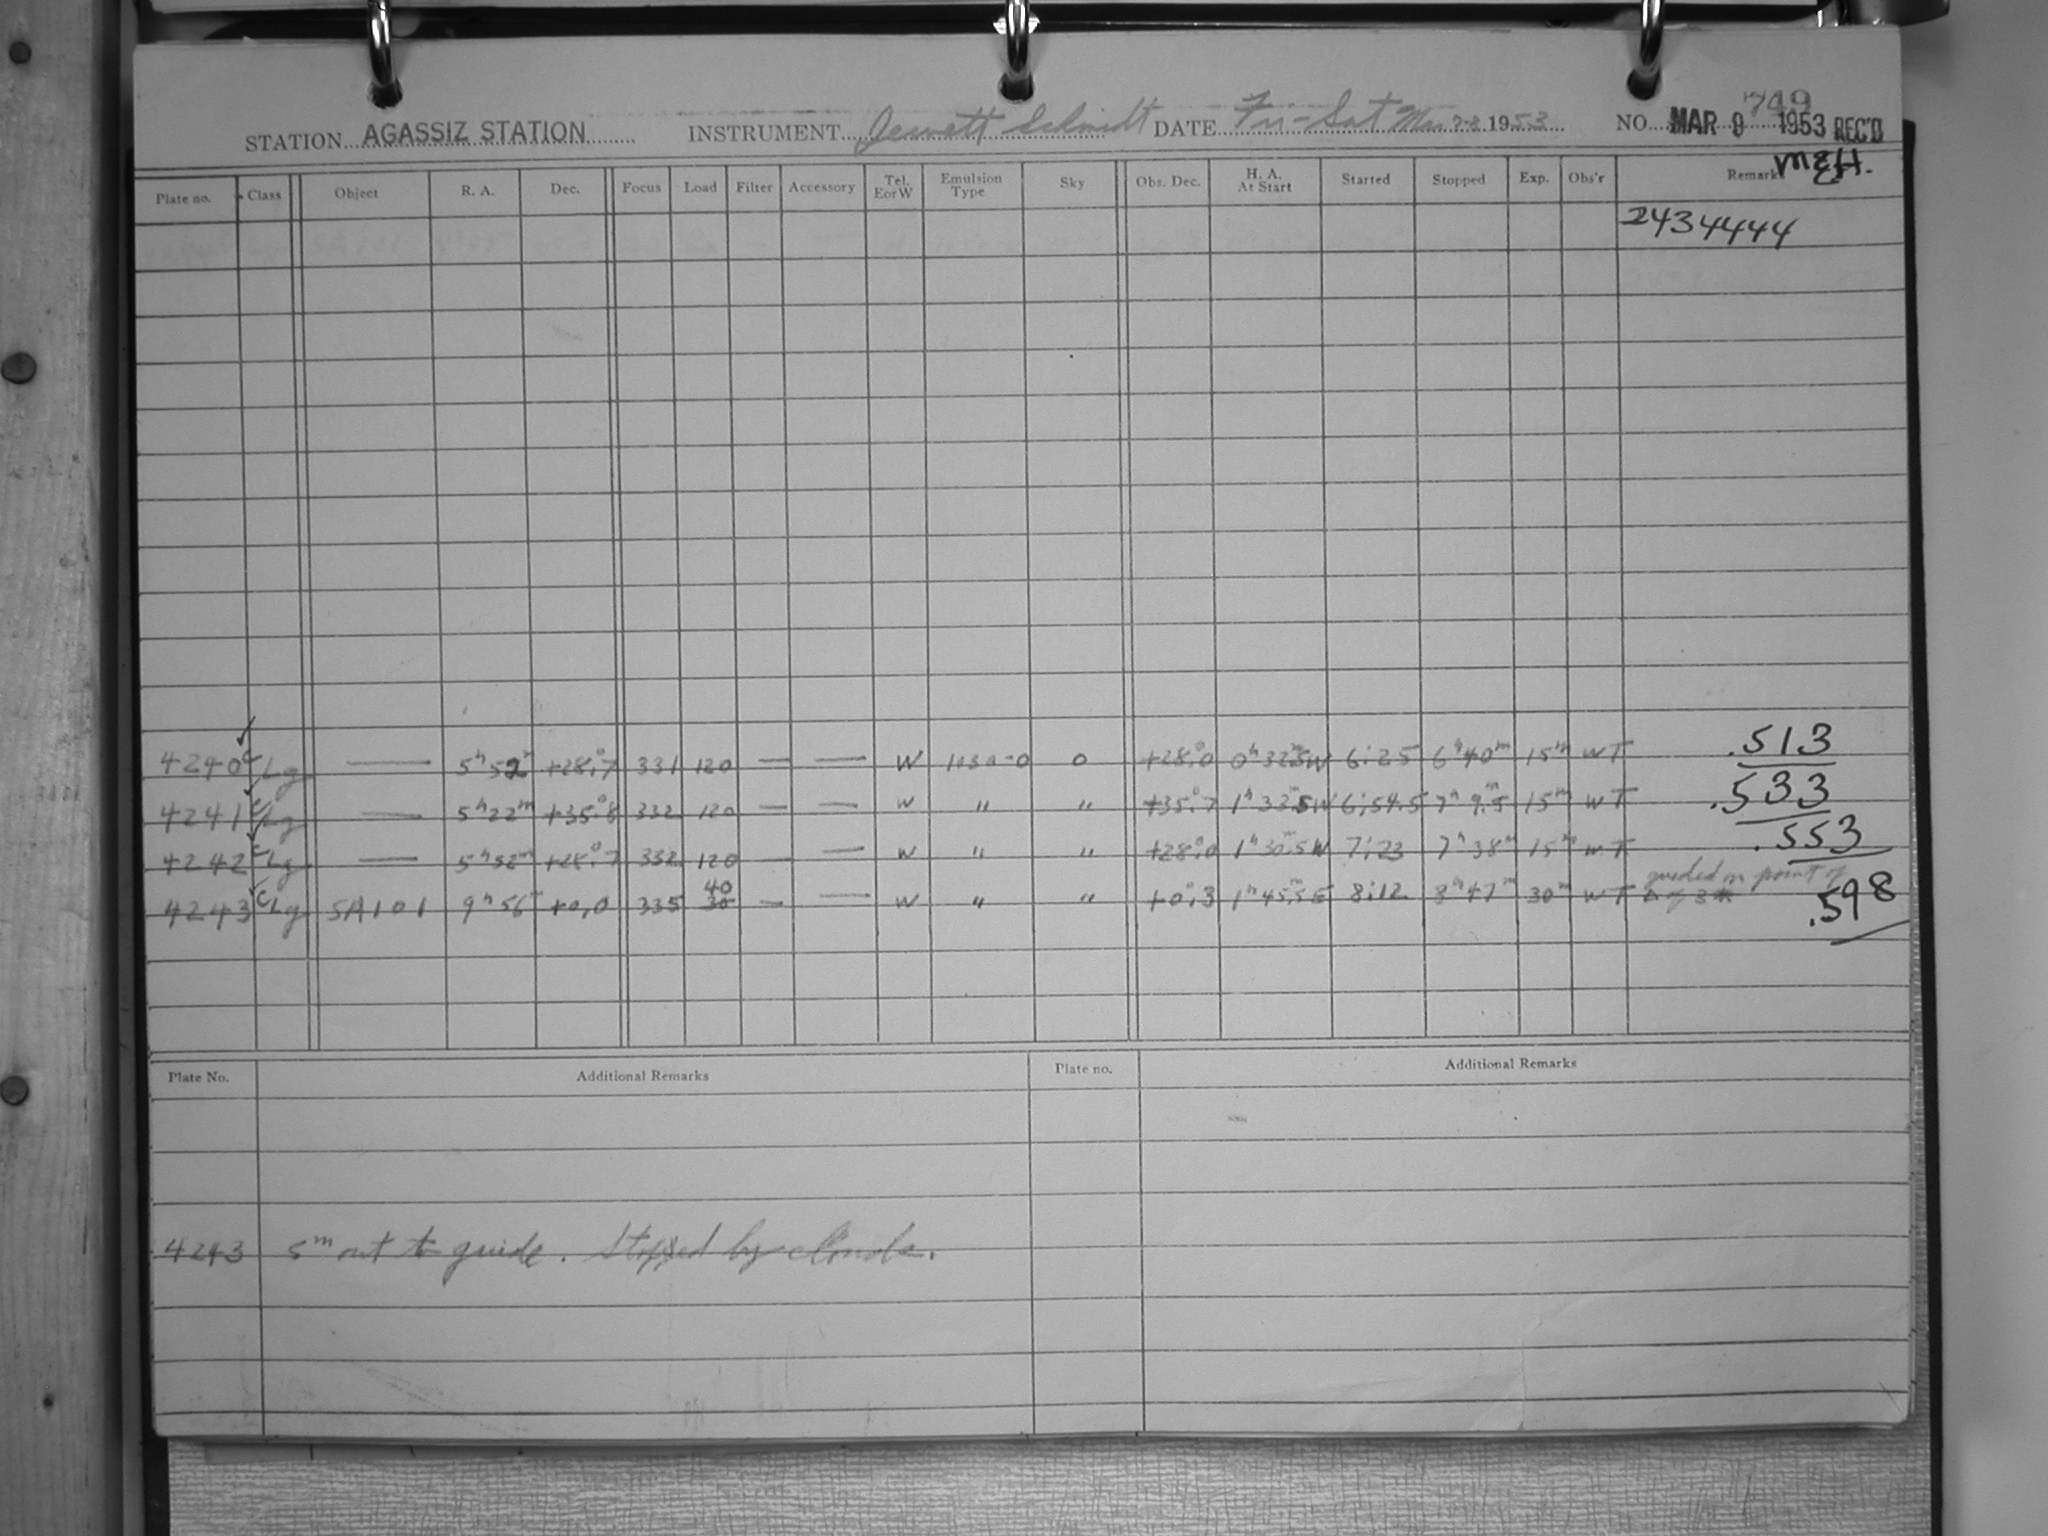 749
STATION AGASSIZ STATION INSTRUMENT Jewett Schmidt DATE Fri-Sat Mar 1953 NO. MAR 9 1953 REC'D
MEH.
Plate no. Class Object R. A. Dec. Focus Load Filter Accessory Tel. EorW Emulsion Type Sky Obs. Dec. H. A. At Start Started Stopped Exp. Obs'r Remarks
2434444
4240 C/Lg — 5h 52m +28°.7 331 120 — — W 113a-0 0 +28°.0 0h 32m.5W 6:25 6h 40m 15m WT .513
4241 C/Lg — 5h 22m +35°.8 332 120 — — W " " +35°.7 1h 33m.5W 6:54.5 7h 9m.5 15m WT .533
4242 C/Lg — 5h 52m +28°.7 332 120 — — W " " +28°.0 1h 30m.5W 7:23 7h 38m 15m WT .553
4243 C/Lg SA101 9h 56m +0.0 335 40 30 — — W " " +0°.3 1h 45m.5E 8:12 8h 47m 30m WT guided on point of Δ of 3* .598
Plate No. Additional Remarks Plate no. Additional Remarks
4243 5m out to guide. Stopped by clouds.